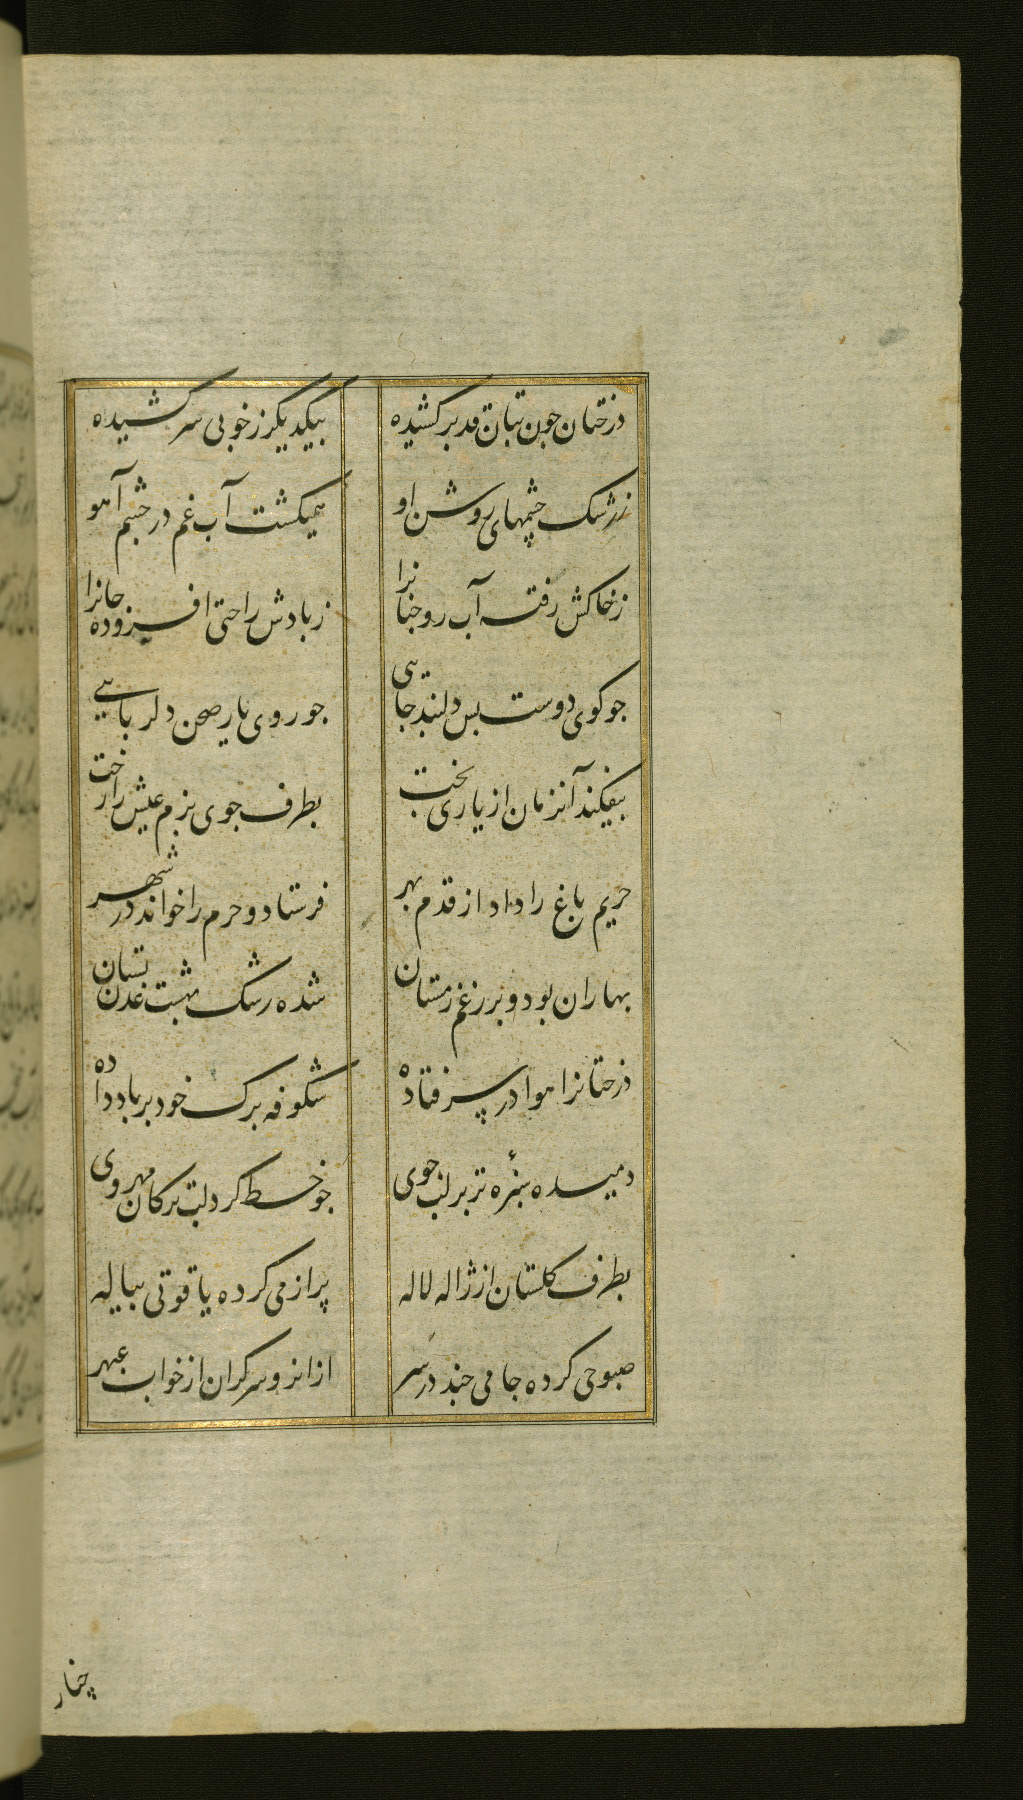 درختان جون بتان قد برکشیده بیکدیکر ز خوبی سر کشیده
ز رشک چشمهای روشن او همیکشت آب غم در چشم آهو
ز خاکش رفته آب رو جنانرا ز بادش راحتی افزوده جانرا
جو کوی دوست بس دلبند جایی جو روی یار صحن دلربایی
بیفکند آنزمان از یاری بخت بطرف جوی بزم عیش را رخت
حریم باغ را داد از قدم بهر فرستاد و حرم را خواند در شهر
بهاران بود و بر رغم زمستان شده رشک بهشت عدن بستان
درختانرا هوا در سر فتاده شکوفه برک خود بر باد داده
دمیده سبزه تر بر لب جوی جو خط کرد لب ترکان مهروی
بطرف کلستان از ژاله لاله پر از می کرده یاقوتی پیاله
صبوحی کرده جامی جند در سر از انرو سر کران از خواب عبهر
چنار